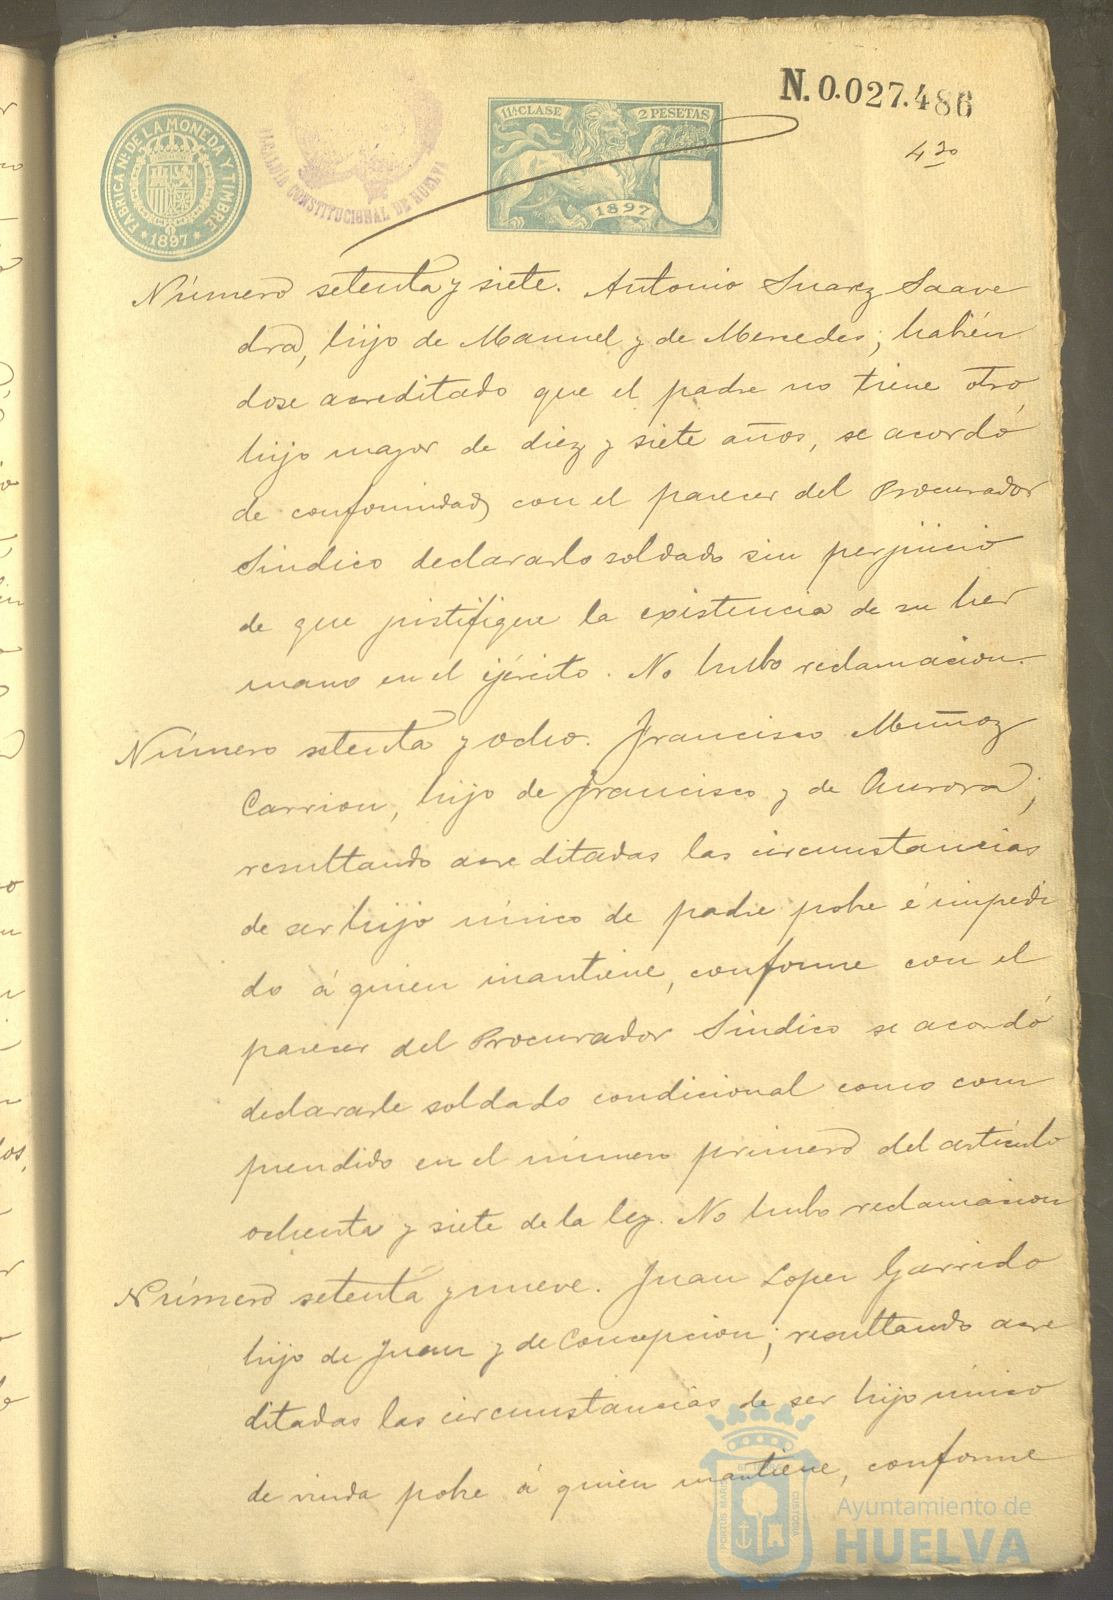 N. 0.027.486
FABRICA Nl. DE LA MONEDA Y TIMBRE
* 1897 *
ALCALDIA CONSTITUCIONAL DE HUELVA
11ª CLASE 2 PESETAS
1897
Número setenta y siete. Antonio Suarez Saave
dra, hijo de Manuel y de Mercedes; habién
dose acreditado que el padre no tiene otro
hijo mayor de diez y siete años, se acordó
de conformidad con el parecer del Procurador
Sindico declararlo soldado sin perjuicio
de que justifique la existencia de su her
mano en el ejército. No hubo reclamacion.
Número setenta y ocho. Francisco Muñoz
Carrion, hijo de Francisco y de Aurora;
resultando acreditadas las circunstancias
de ser hijo único de padre pobre é impedi
do á quien mantiene, conforme con el
parecer del Procurador Sindico se acordó
declararle soldado condicional como com
prendido en el número primero del artículo
ochenta y siete de la ley. No hubo reclamacion
Número setenta y nueve. Juan Lopez Garrido
hijo de Juan y de Concepcion; resultando acre
ditadas las circunstancias de ser hijo único
de viuda pobre á quien mantiene, conforme
PORTUS MARIS CUSTODIA
Ayuntamiento de
HUELVA